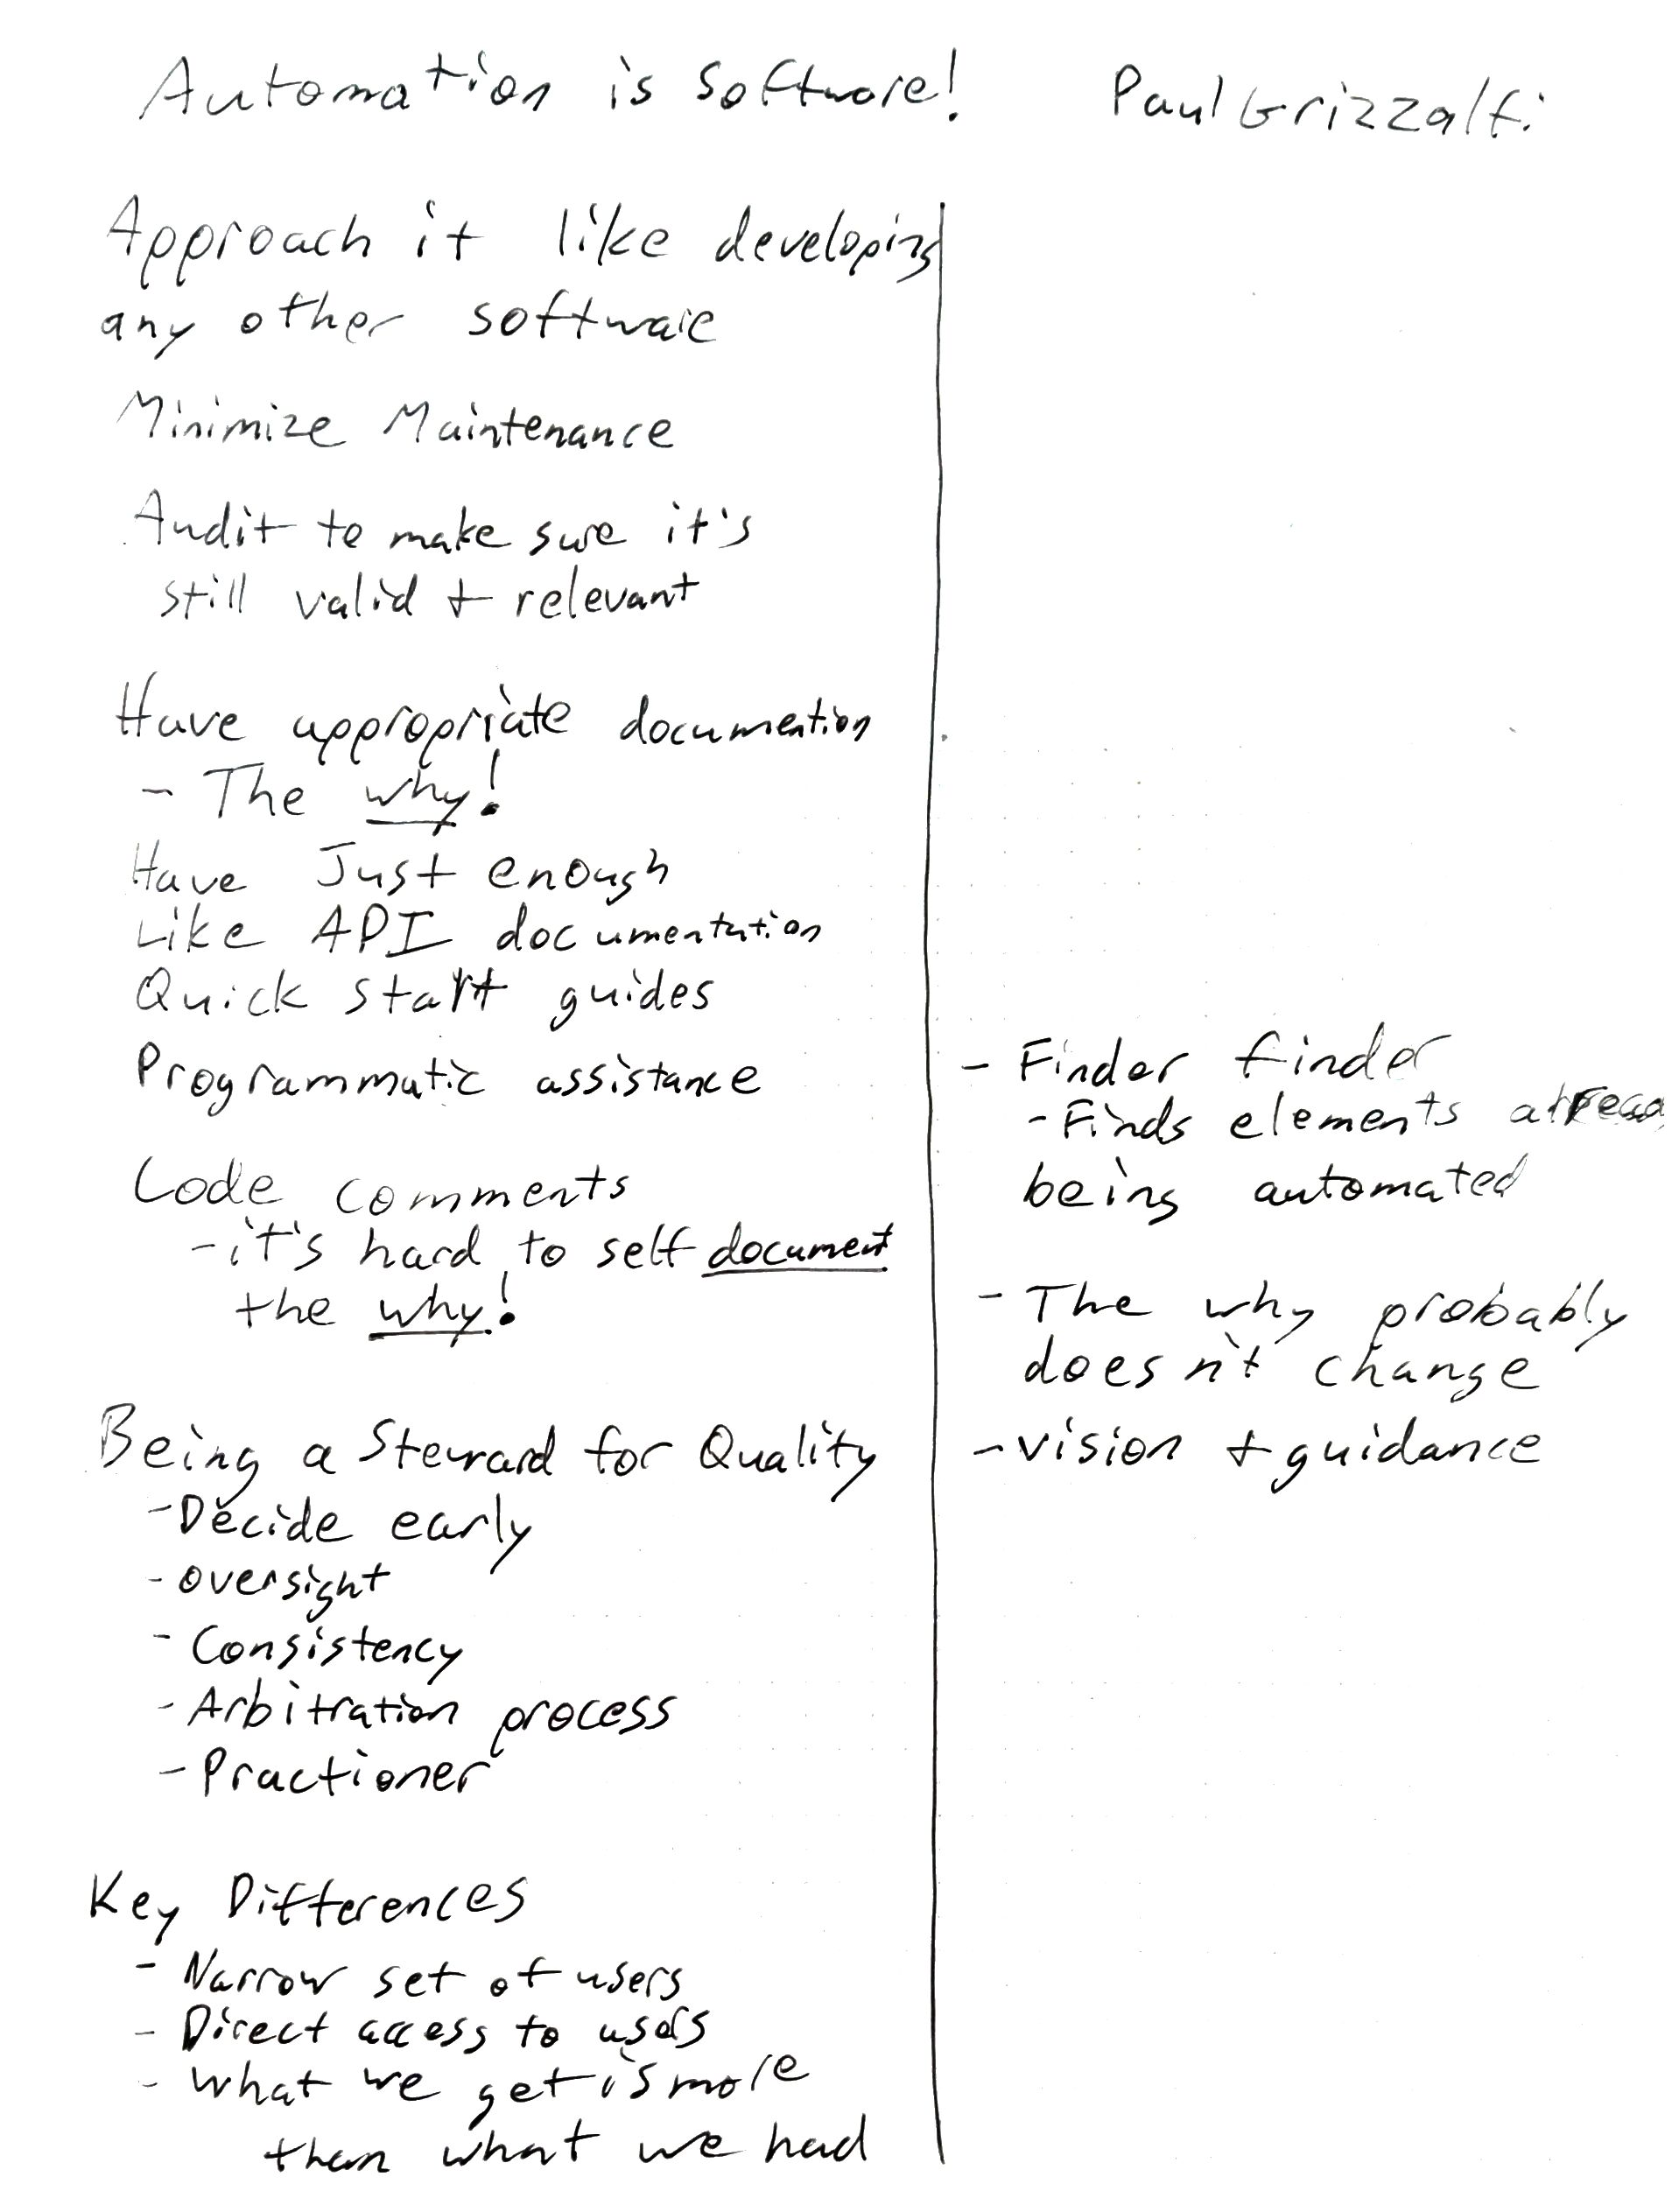 Automation is Software! Paul Grizzaffi
Approach it like developing
any other software
Minimize Maintenance
Audit to make sure it's
still valid + relevant
Have appropriate documention
- The why!
Have Just enough
Like API documentation
Quick start guides
Programmatic assistance
Code comments
- it's hard to self document
the why!
Being a Steward for Quality
- Decide early
- oversight
- Consistency
- Arbitration process
- Practioner
Key Differences
- Narrow set of users
- Direct access to users
- What we get is more
than what we had
- Finder finder
- Finds elements
being automated
- The why probably
doesn't change
- vision + guidance